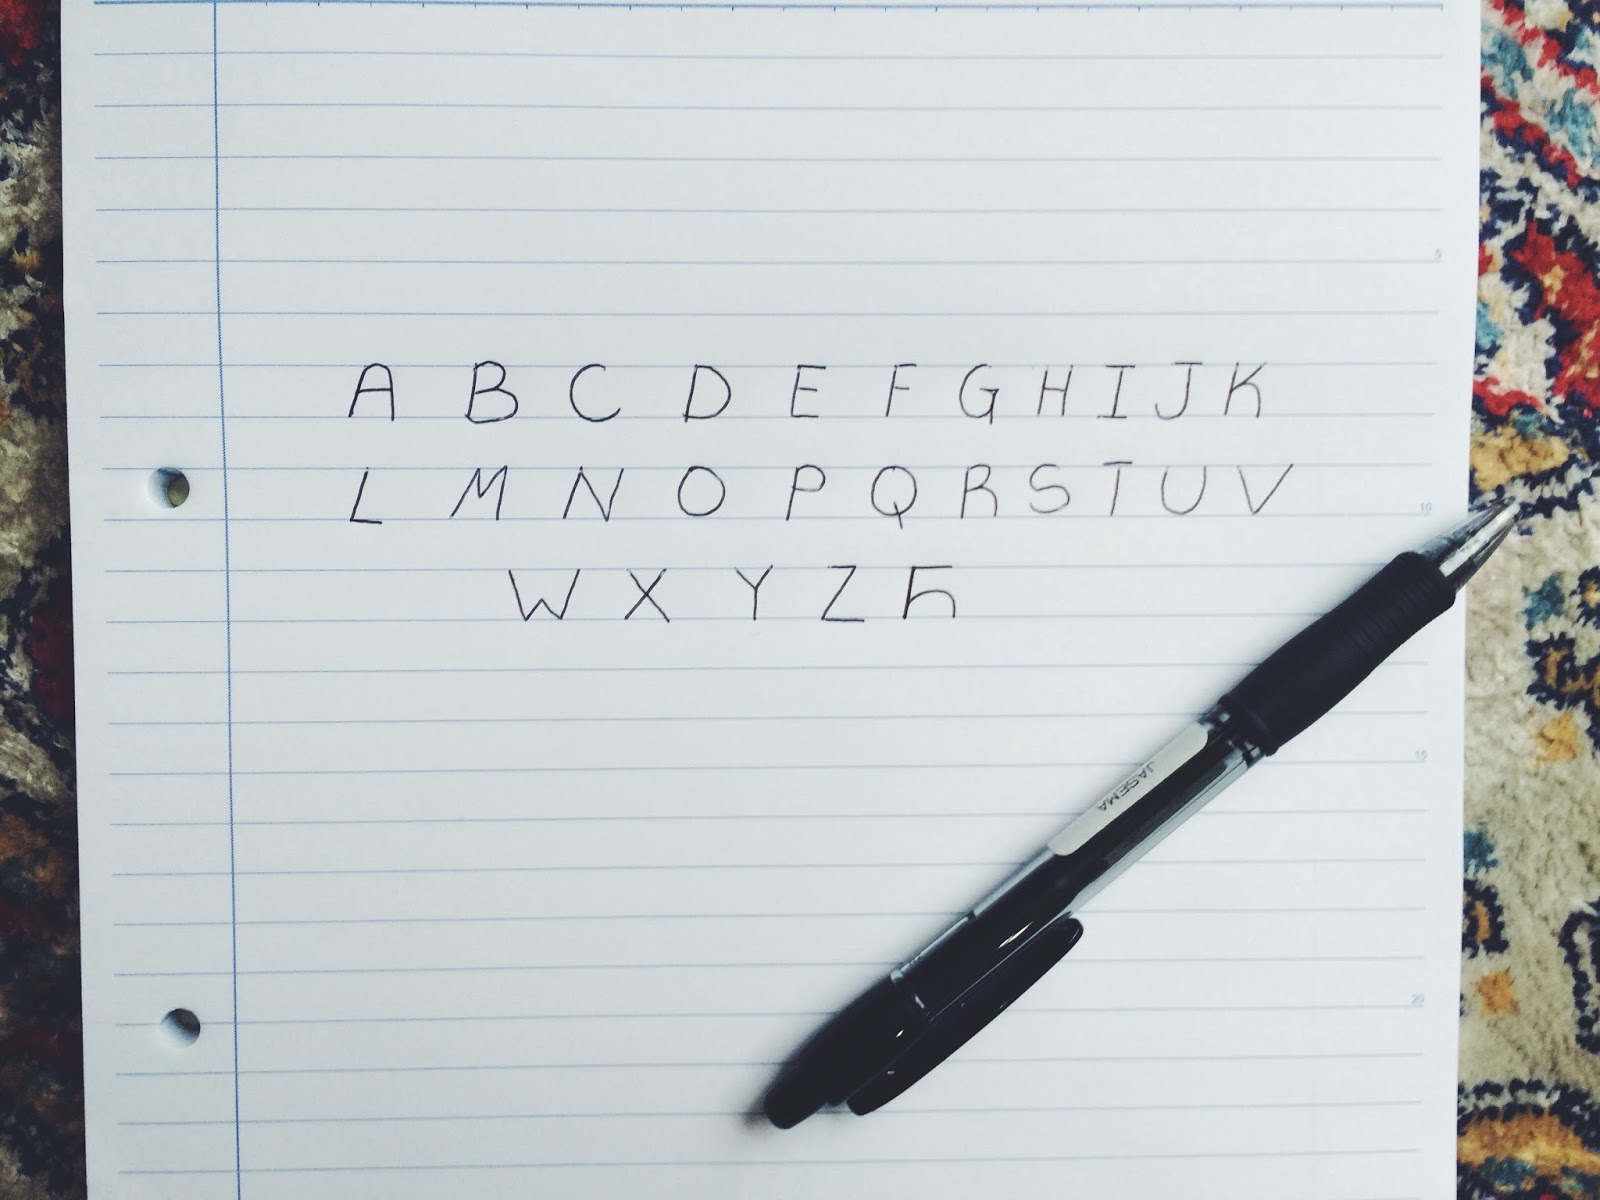 A B C D E F G H I J K
L M N O P Q R S T U V
W X Y Z ꞕ
5
10
15
20
JASEMA